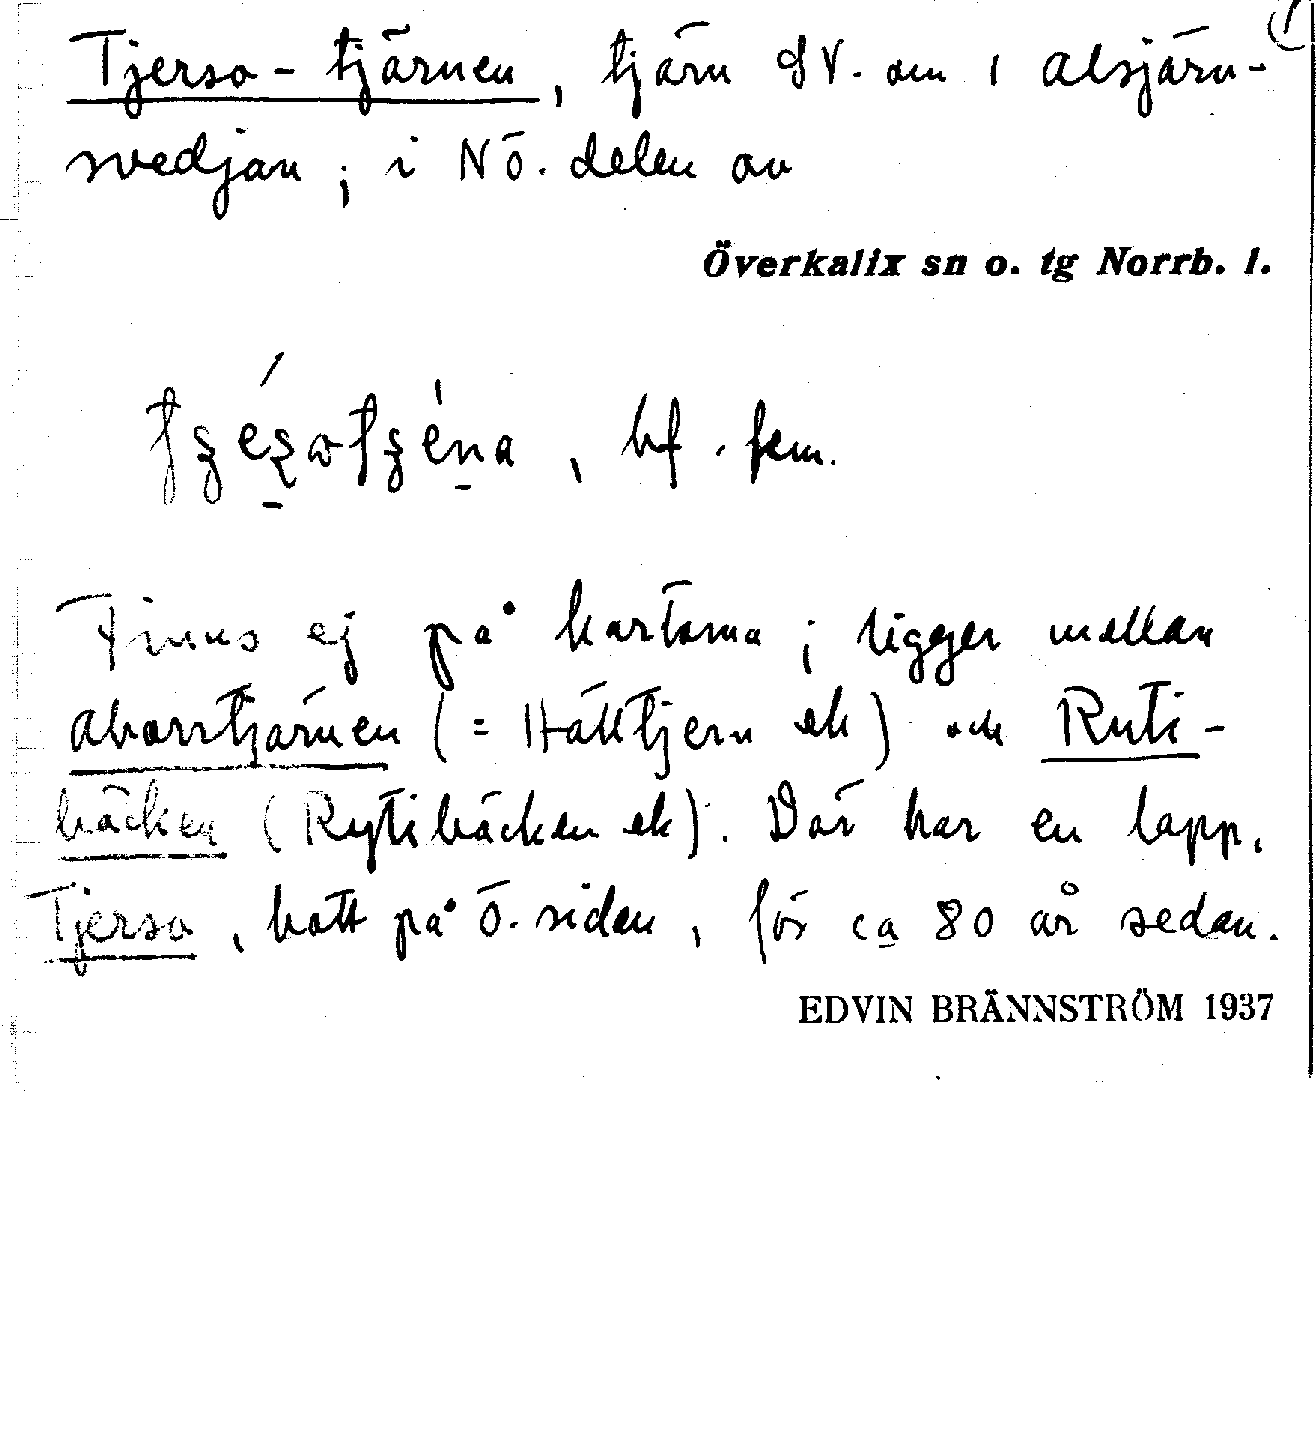 Tjerso-tjärnen, tjärn SV. om 1 Alsjärn-
svedjan ; i NÖ. delen av
Överkalix sn o. tg Norrb. l.
, bf. fem.
Finns ej på kartorna ; ligger mellan
Aborrtjärnen (= Hálltjern ek) och Ruti-
bäcken (Rytibäcken ek). Där har en lapp,
Tjerso, bott på ö. sidan, för ca 80 år sedan.
EDVIN BRÄNNSTRÖM 1937